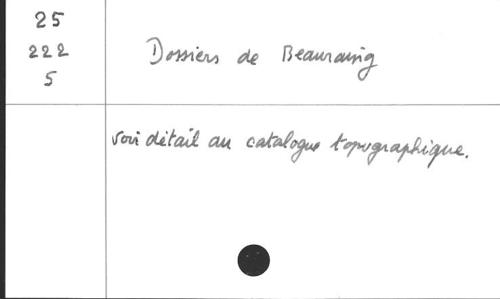 25
222
5
Dossiers de Beauraing
voir détail au catalogue topographique.